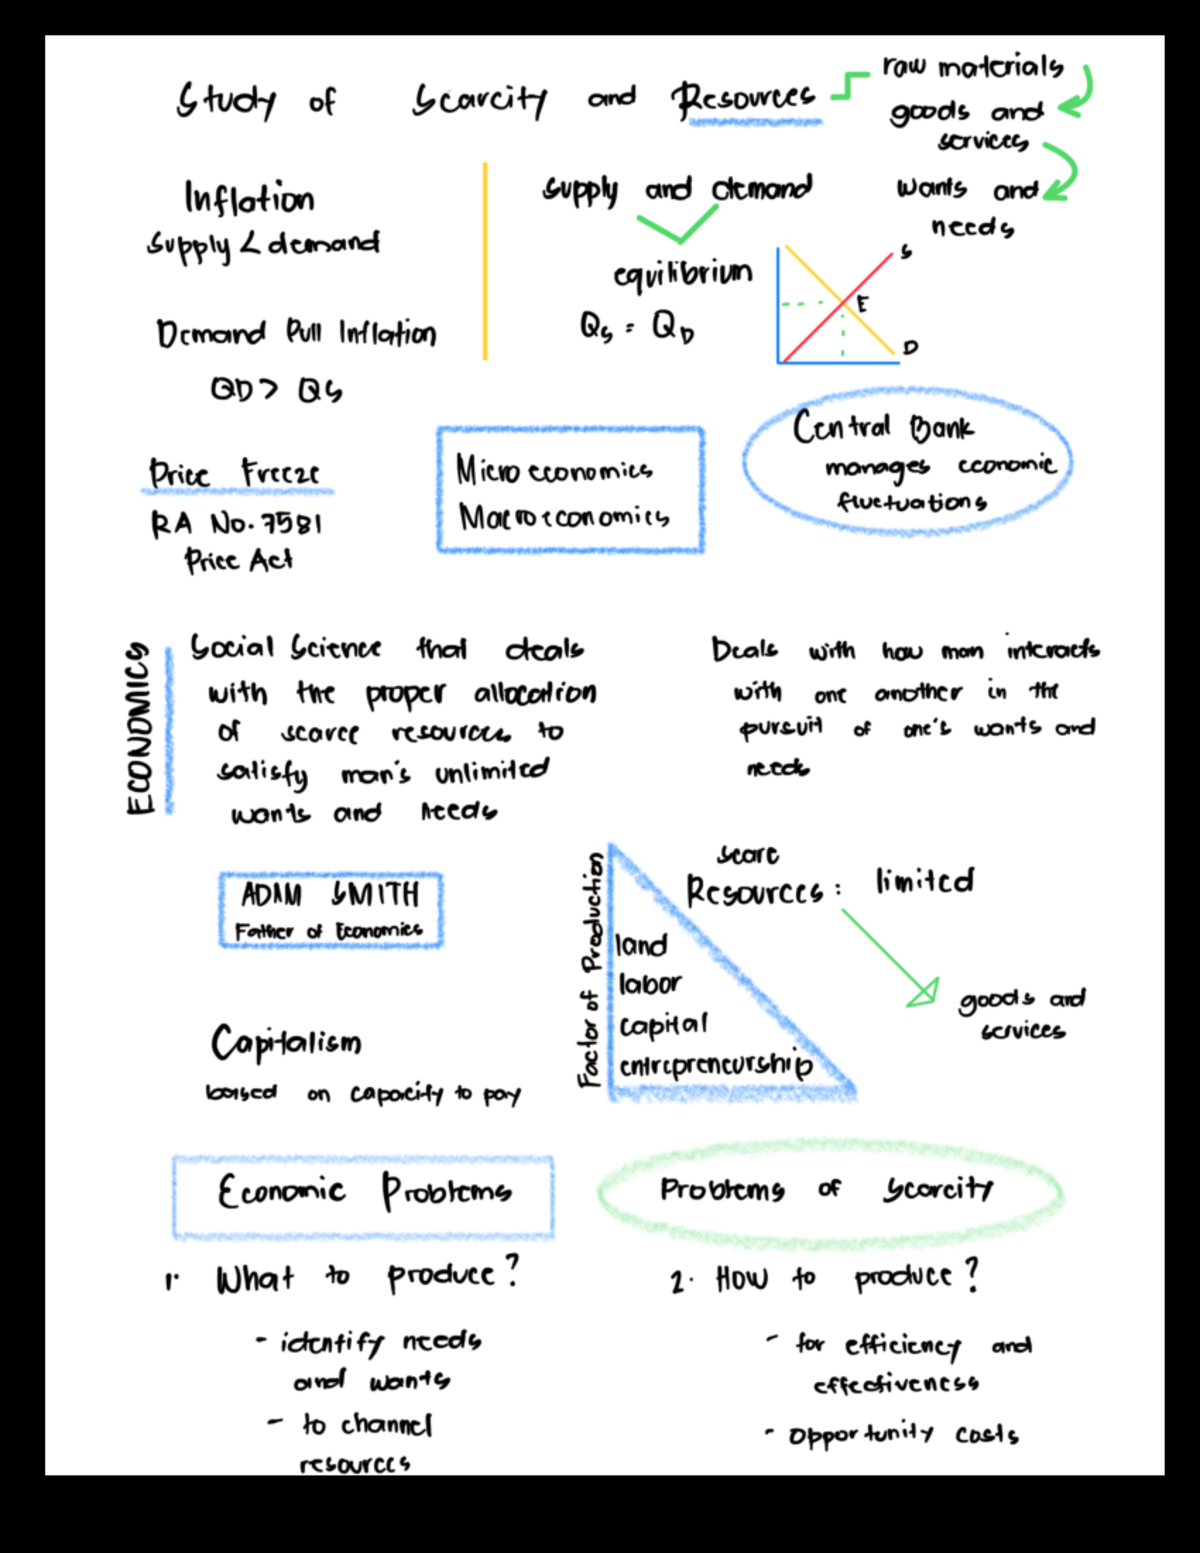 Study of Scarcity and Resources
raw materials
goods and
services
wants and
needs
Inflation
supply < demand
Demand Pull Inflation
QD > QS
supply and demand
equilibrium
Qs = QD
S
E
D
Price Freeze
RA No. 7581
Price Act
Micro economics
Macro economics
Central Bank
manages economic
fluctuations
ECONOMICS
Social Science that deals
with the proper allocation
of scarce resources to
satisfy man's unlimited
wants and needs
Deals with how man interacts
with one another in the
pursuit of one's wants and
needs
ADAM SMITH
Father of Economics
Capitalism
based on capacity to pay
Factor of Production
land
labor
capital
entrepreneurship
Scarc
Resources : limited
goods and
services
Economic Problems
Problems of Scarcity
1. What to produce?
- identify needs
and wants
- to channel
resources
2. How to produce?
- for efficiency and
effectiveness
- opportunity costs